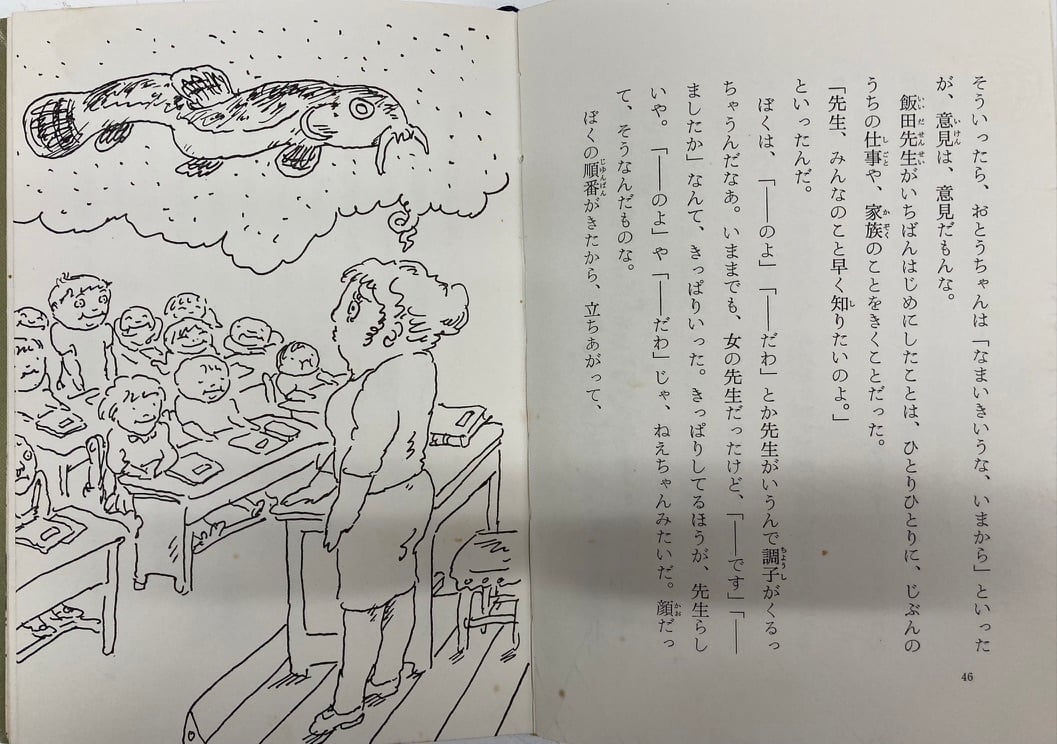 そういったら、おとうちゃんは「なまいきいうな、いまから」といった
が、意見は、意見だもんな。
飯田先生がいちばんはじめにしたことは、ひとりひとりに、じぶんの
うちの仕事や、家族のことをきくことだった。
「先生、みんなのこと早く知りたいのよ。」
といったんだ。
ぼくは、「――のよ」「――だわ」とか先生がいうんで調子がくるっ
ちゃうんだなあ。いままでも、女の先生だったけど、「――です」「――
ましたか」なんて、きっぱりいった。きっぱりしてるほうが、先生らし
いや。「――のよ」や「――だわ」じゃ、ねえちゃんみたいだ。顔だっ
て、そうなんだものな。
ぼくの順番がきたから、立ちあがって、
46